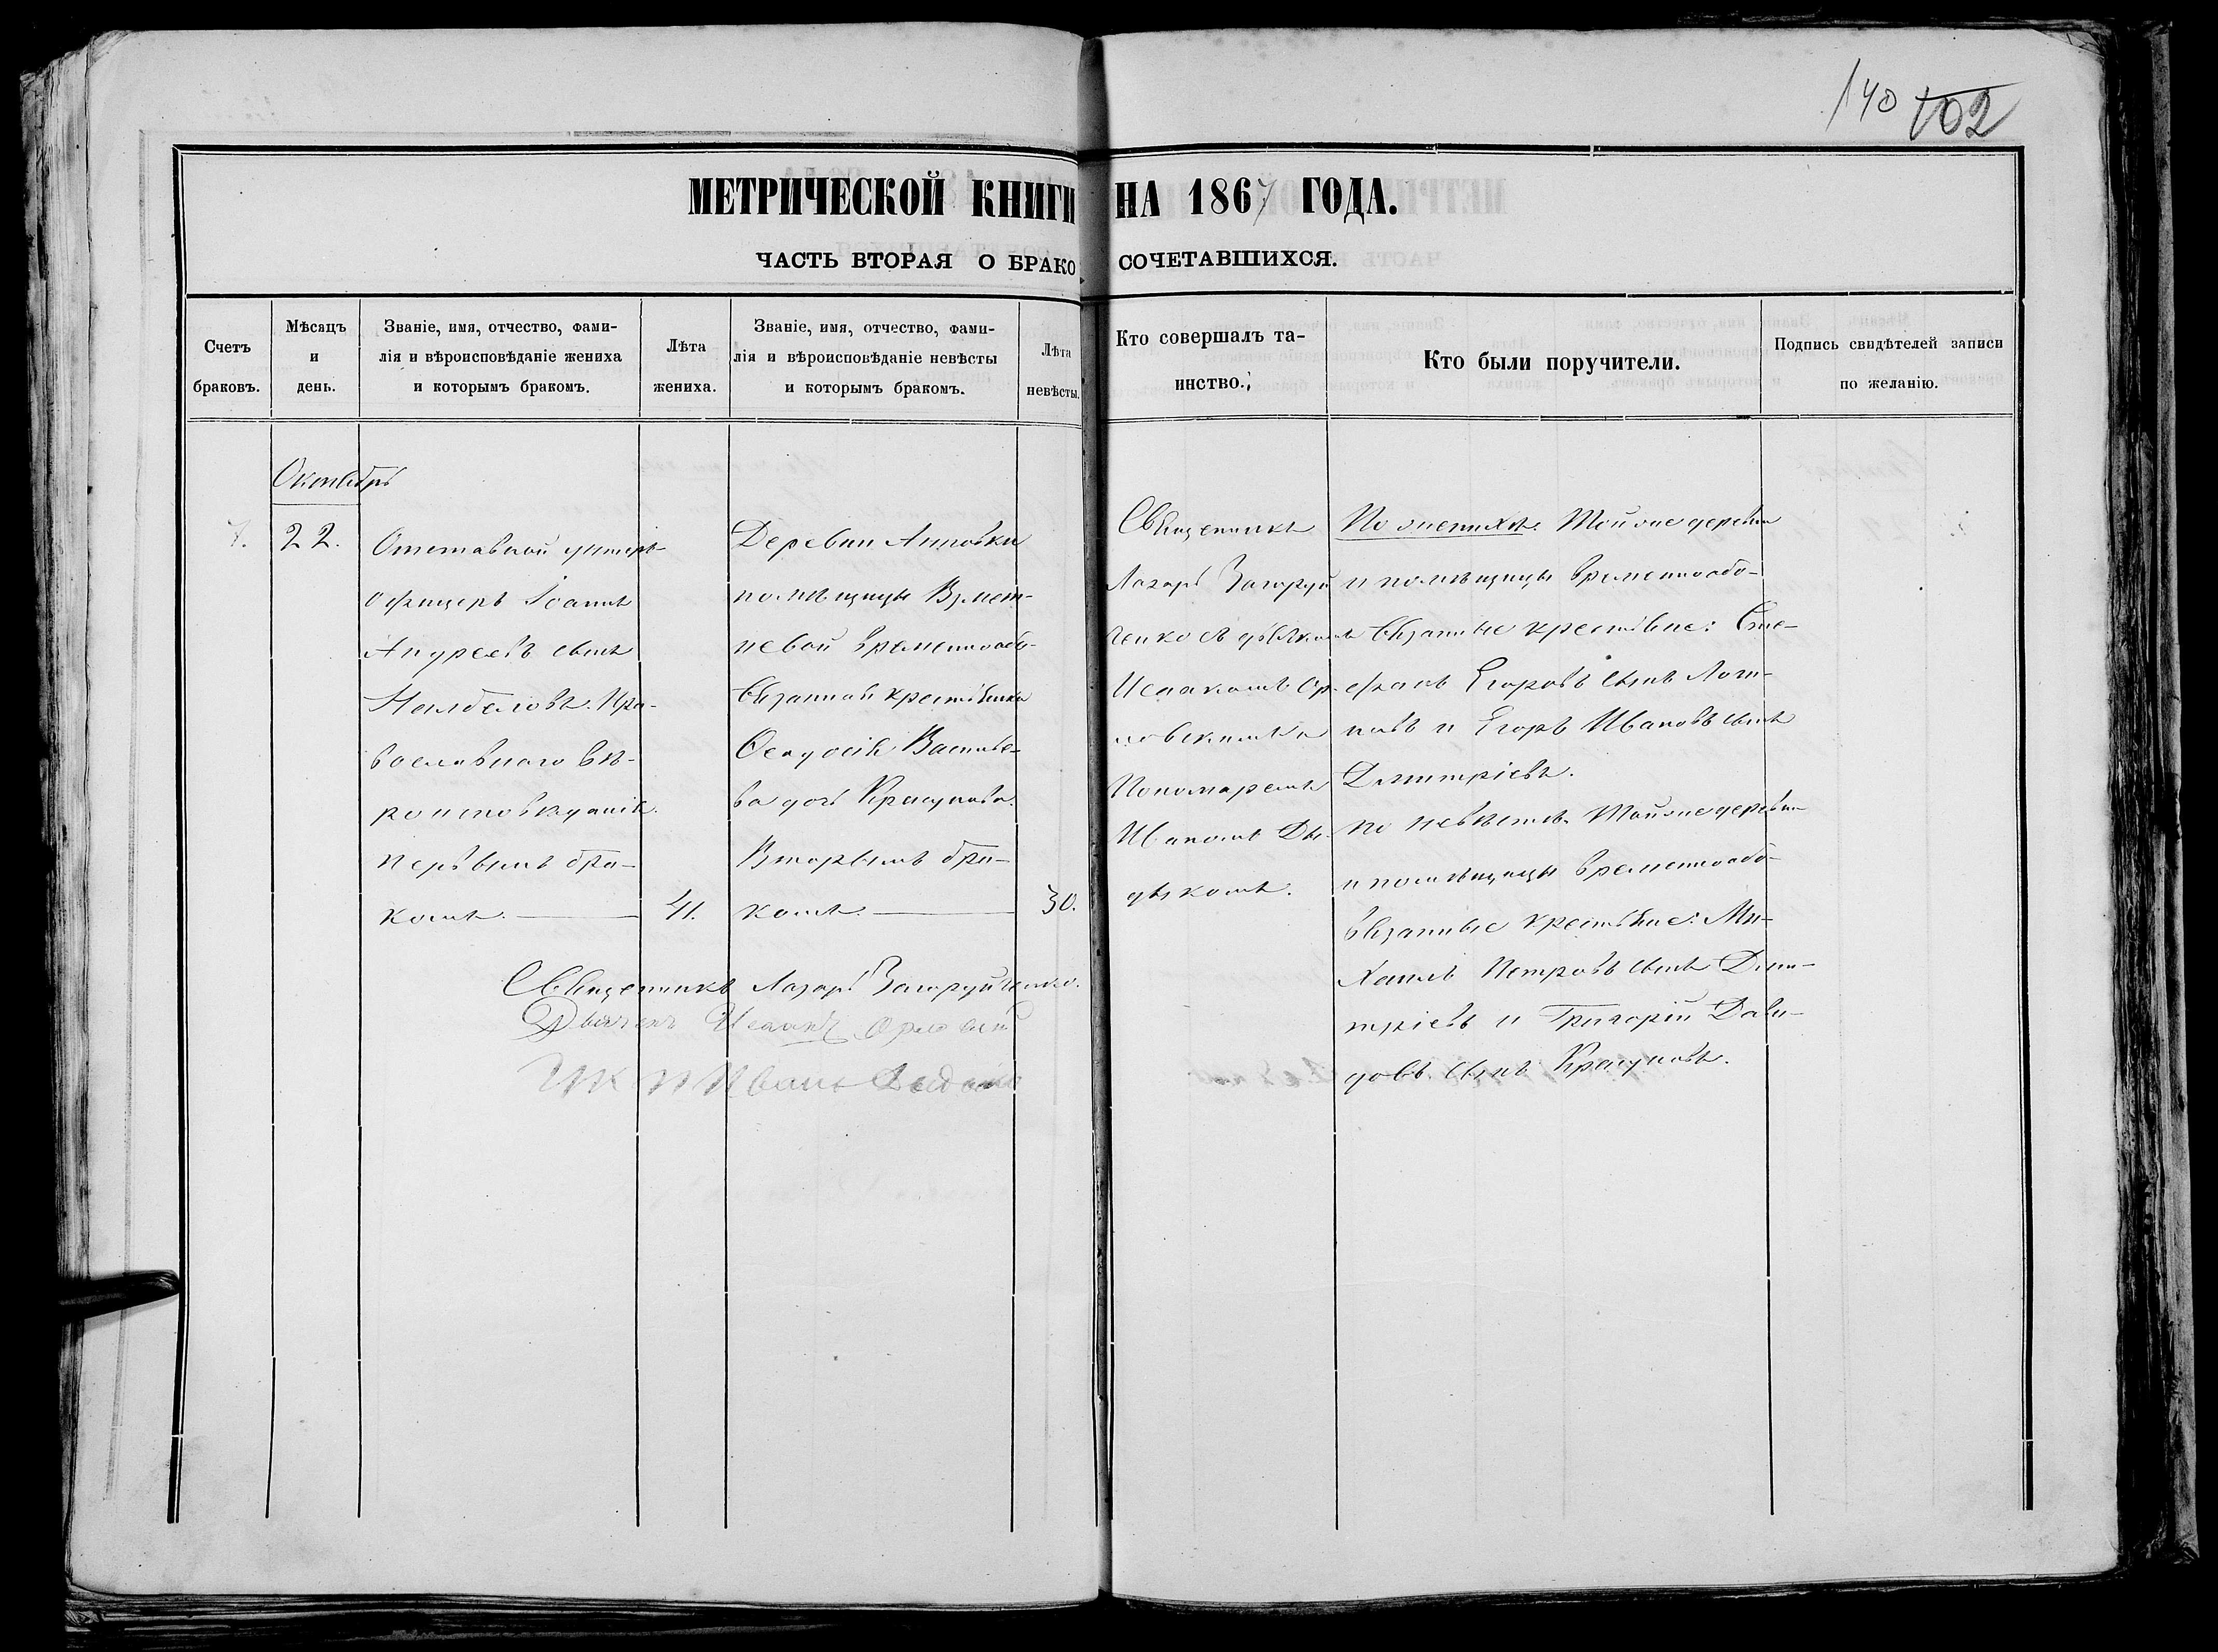 140 102
МЕТРИЧЕСКОЙ КНИГИ НА 1867 ГОДА.
ЧАСТЬ ВТОРАЯ О БРАКОСОЧЕТАВШИХСЯ.
Счетъ
браковъ.
Мѣсяцъ
и
день.
Званіе, имя, отчество, фами-
лія и вѣроисповѣданіе жениха
и которымъ бракомъ.
Лѣта
жениха.
Званіе, имя, отчество, фами-
лія и вѣроисповѣданіе невѣсты
и которымъ бракомъ.
Лѣта
невѣсты.
Кто совершалъ та-
инство.
Кто были поручители.
Подпись свидѣтелей записи
по желанію.
Октябрь
7.
22.
Отставной унтеръ-
офицеръ Іоаннъ
Андреевъ сынъ
Пра-
вославнаго вѣ-
роисповѣданія.
первымъ бра-
комъ.
41.
Деревни
помѣщицы
временнообя-
вязанная крестьянка
Ѳеодосія Василье-
ва дочь Красунова.
Вторымъ бра-
комъ.
30.
Священникъ
Лазарь Загоруй
ченко съ дьячкомъ
Исаакомъ Ор-
ловскимъ и
Пономаремъ
Иваномъ Дя-
дькомъ.
По женихѣ: Той же деревни
и помѣщицы временнообо-
вязанные крестьяне: Сте-
фанъ Егоровъ сынъ
и Егоръ Ивановъ сынъ
Димитріевъ.
По невѣстѣ. Той же деревни
и помѣщицы временнообо-
вязанные крестьяне: Ми-
хаилъ Петровъ сынъ Дими-
тріевъ и Григорій Дави-
довъ сынъ Красуновъ.
Священникъ Лазарь Загоруйченко.
Дьячекъ Исаакъ Орловскій
Иванъ